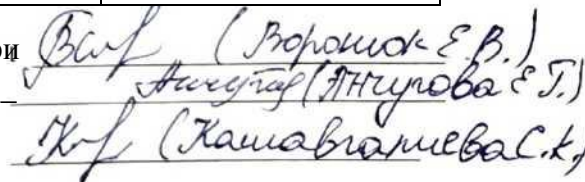 ри (Воронюк Е.В.)
(Анчурова Е.Г.)
(Кашавгалиева С.К.)